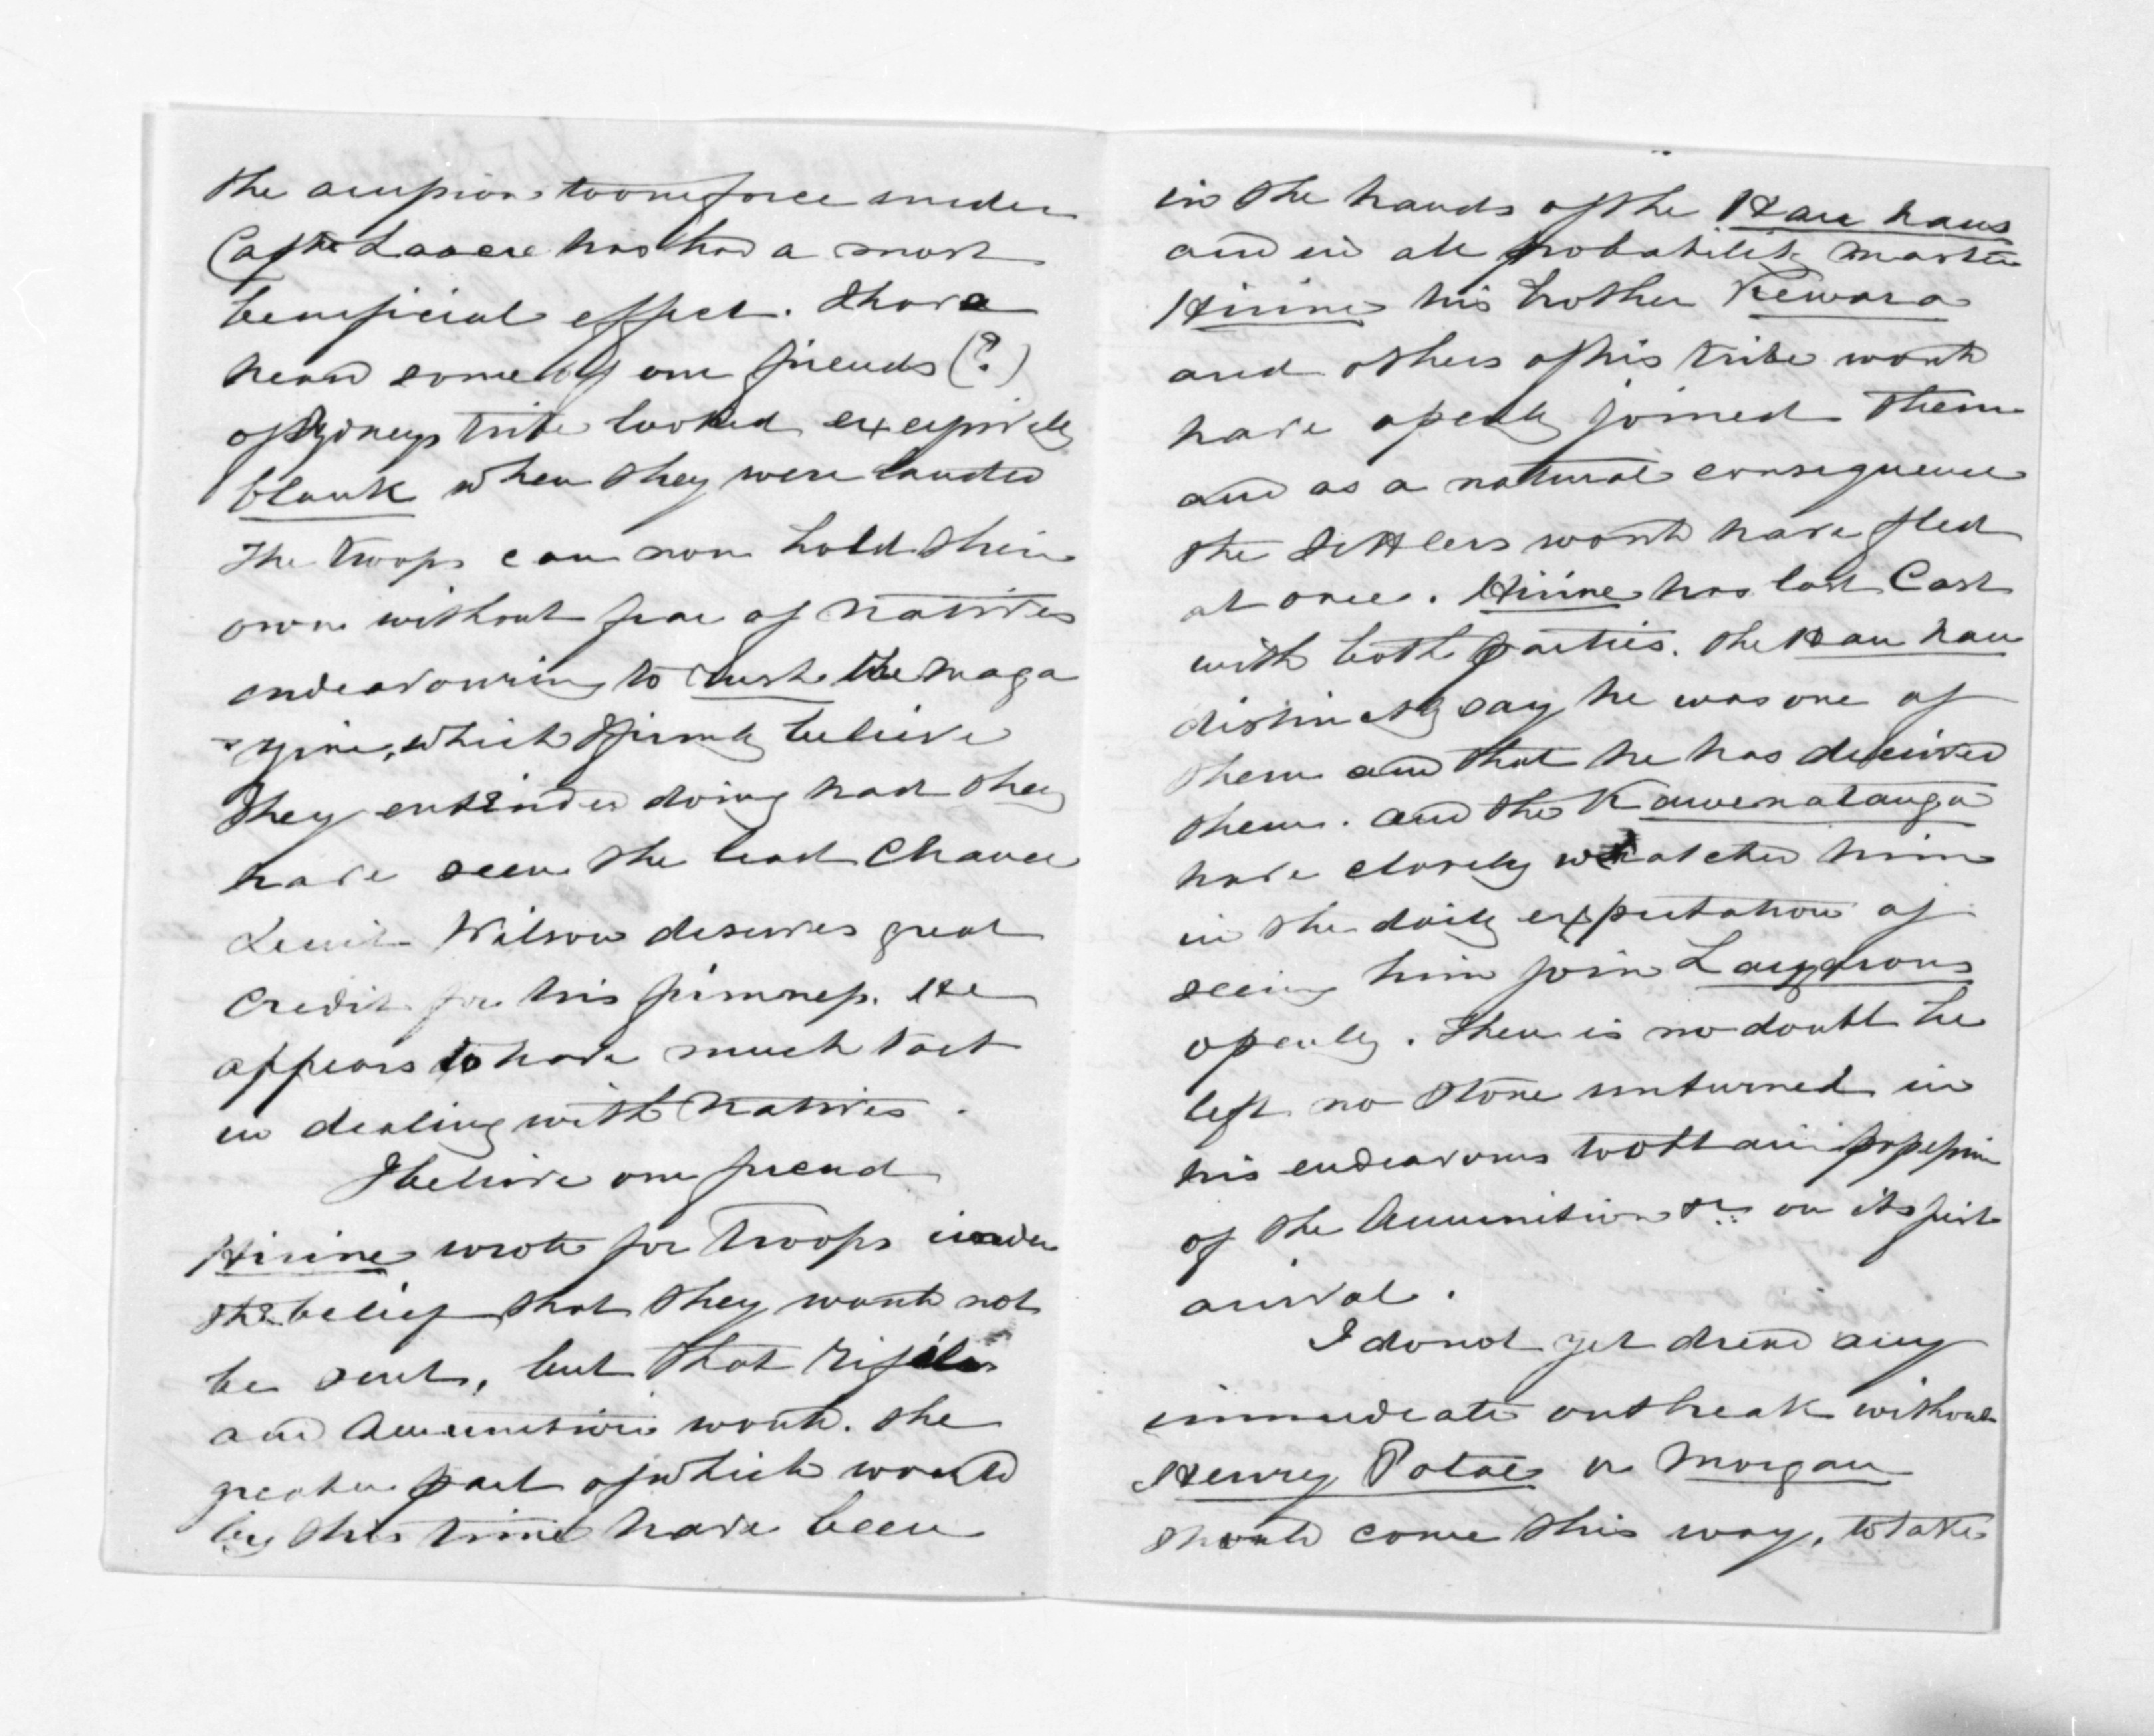 The accession to our force under
Captn La
has had a most
beneficial effect. I have
heard some of our friends (?)
of Sydney's tribe looked excessively
blank when they were landed
The troops can now hold their
own without fear of Natives
endeavouring to rush the maga
=zine, which I firmly believe
they entended doing had they
have seen the least Chance
Lieut Wilson deserves great
Credit for his firmness. He
appears to have much tact
in dealing with Natives.
I believe our friend
Hirine wrote for Troops under
the belief that they would not
be sent, but that rifles
and Ammunition would. The
greater part of which would
by this time have been
in the hands of the Hau haus
and in all probability master
Hirine his brother Rewara
and others of his tribe would
have openly joined them
and as a natural consequence
the Settlers would have fled
at once. Hirine has lost Cast
with both parties. The Hau hau
distinctly say he was one of
them and that he has deceived
them. and the Kawenatanga
have closely watched him
in the daily expectation of
seeing him join
openly. There is no doubt he
left no stone unturned in
his endeavours to obtain possession
of the Ammunition &c on its first
arrival.
I do not yet dread any
immediate outbreak without
Henry Potae or Morgan
should come this way, to take